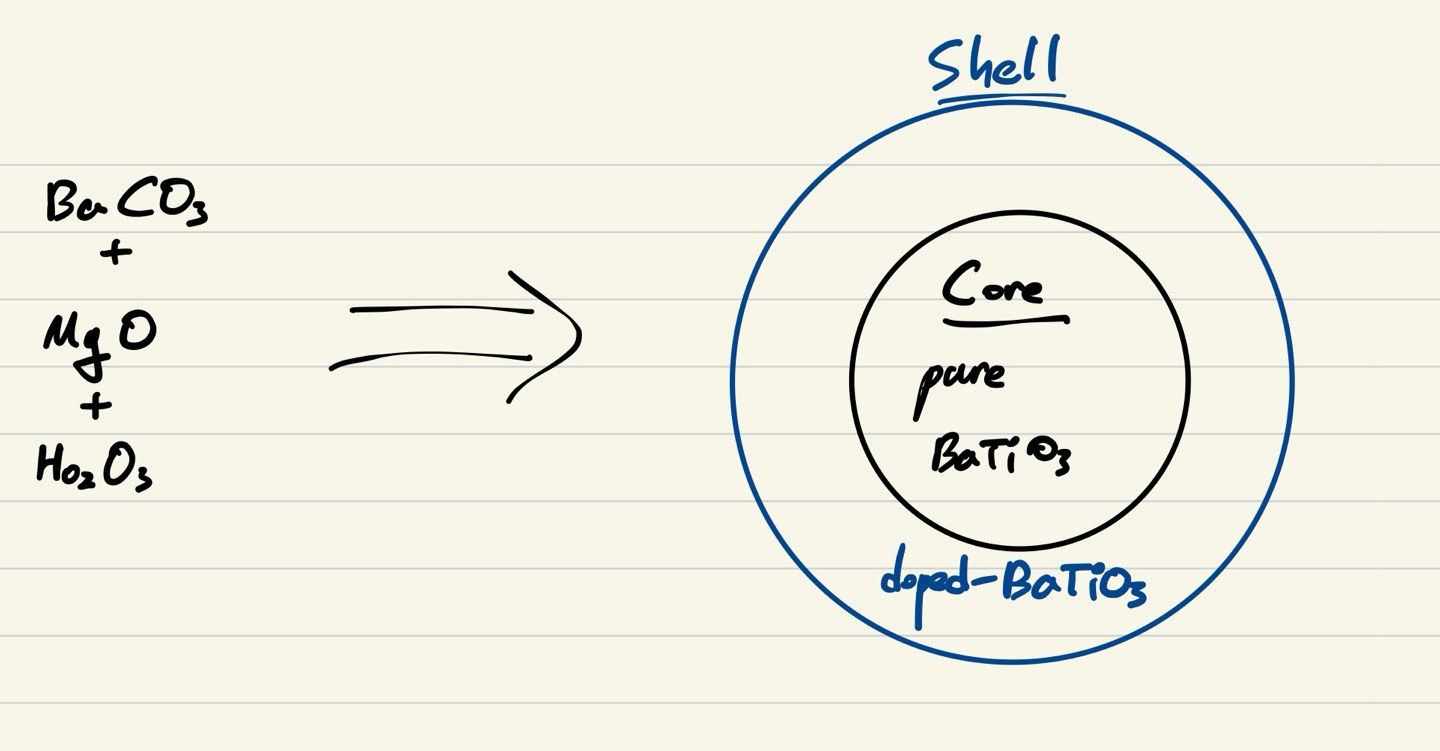 BaCO₃
+
MgO
+
Ho₂O₃
Shell
Core
pure
BaTiO₃
doped-BaTiO₃